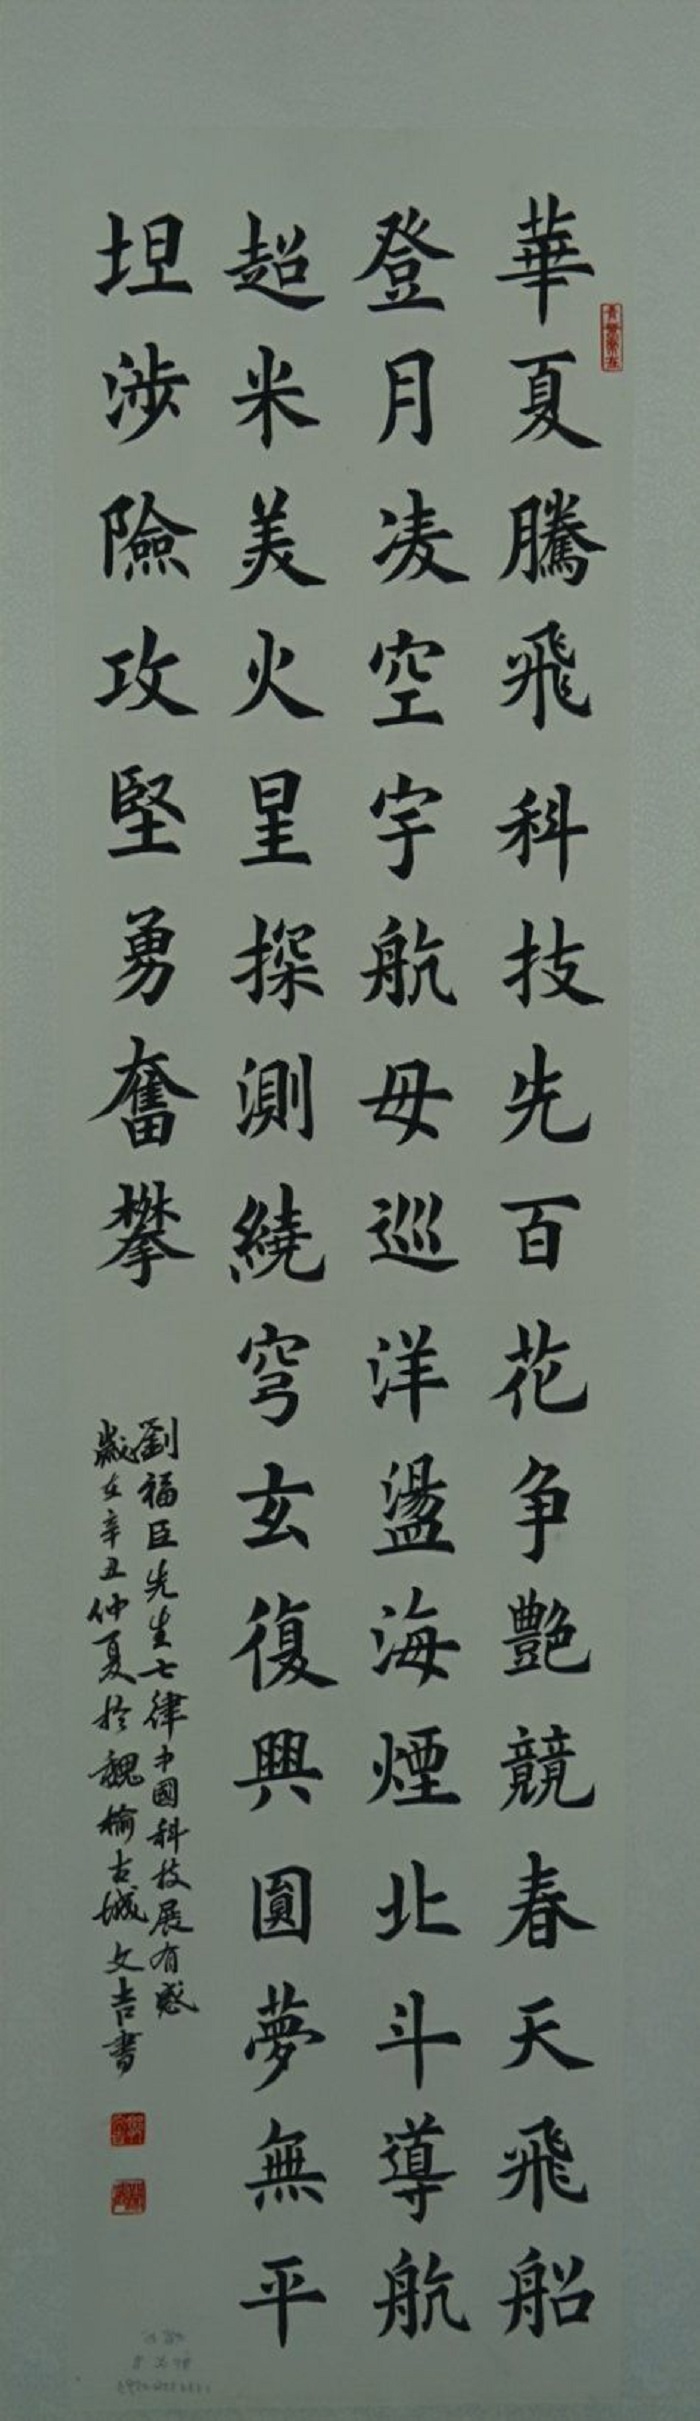 華夏騰飛科技先百花争艶競春天飛船
登月凌空宇航母巡洋盪海煙北斗導航
超米美火星探測繞穹玄復興圓夢無平
坦涉險攻堅勇奮攀
劉福臣先生七律中國科技展有感
歲在辛丑仲夏於魏榆古城文吉書